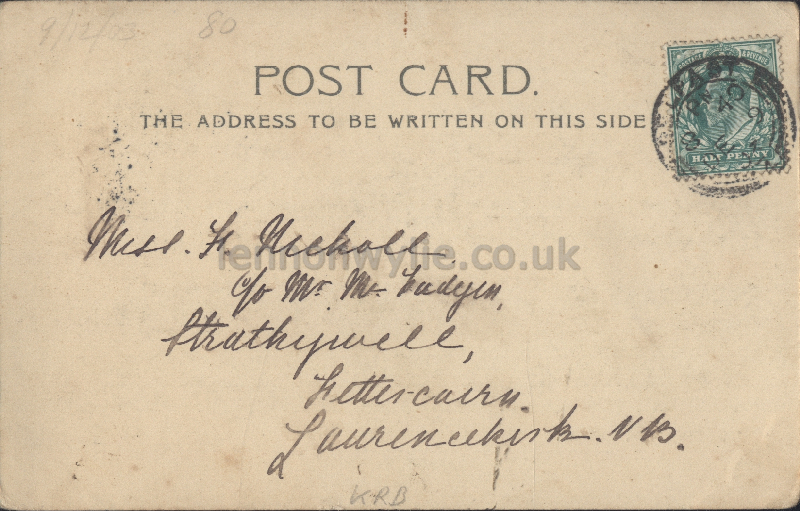 9/12/03 80
POST CARD.
THE ADDRESS TO BE WRITTEN ON THIS SIDE
POSTAGE & REVENUE
BELFAST
HALF PENNY
Miss. F. Nickoll
lennonwylie.co.uk
c/o Mr. Mc Fadyen,
Strathywell,
Fettercairn.
Laurencekirk. N.B.
KRB